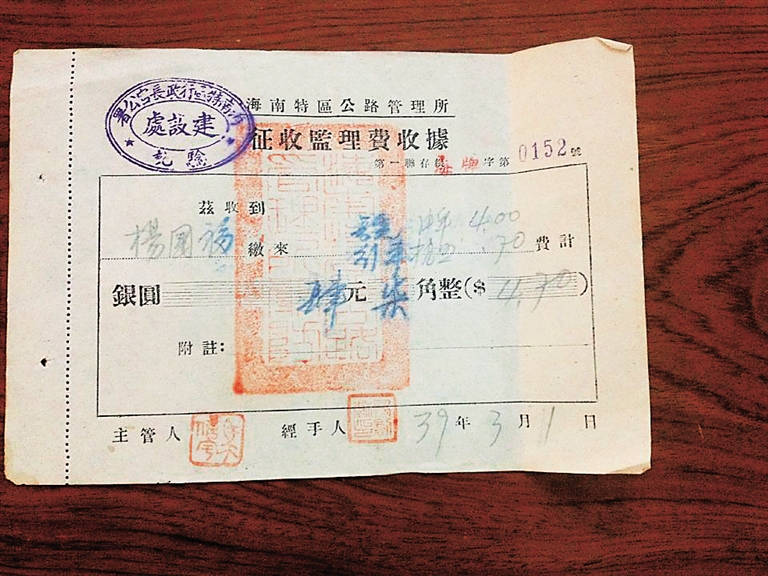 海南特區行政長官公署
建設處
驗訖
海南特區公路管理所
征收監理費收據
第一聯存 字第0152號
茲收到
楊國 繳來 4.00 .70 費計
銀圓 肆元柒角整($4.70)
附註:
主管人 經手人 39年3月1日